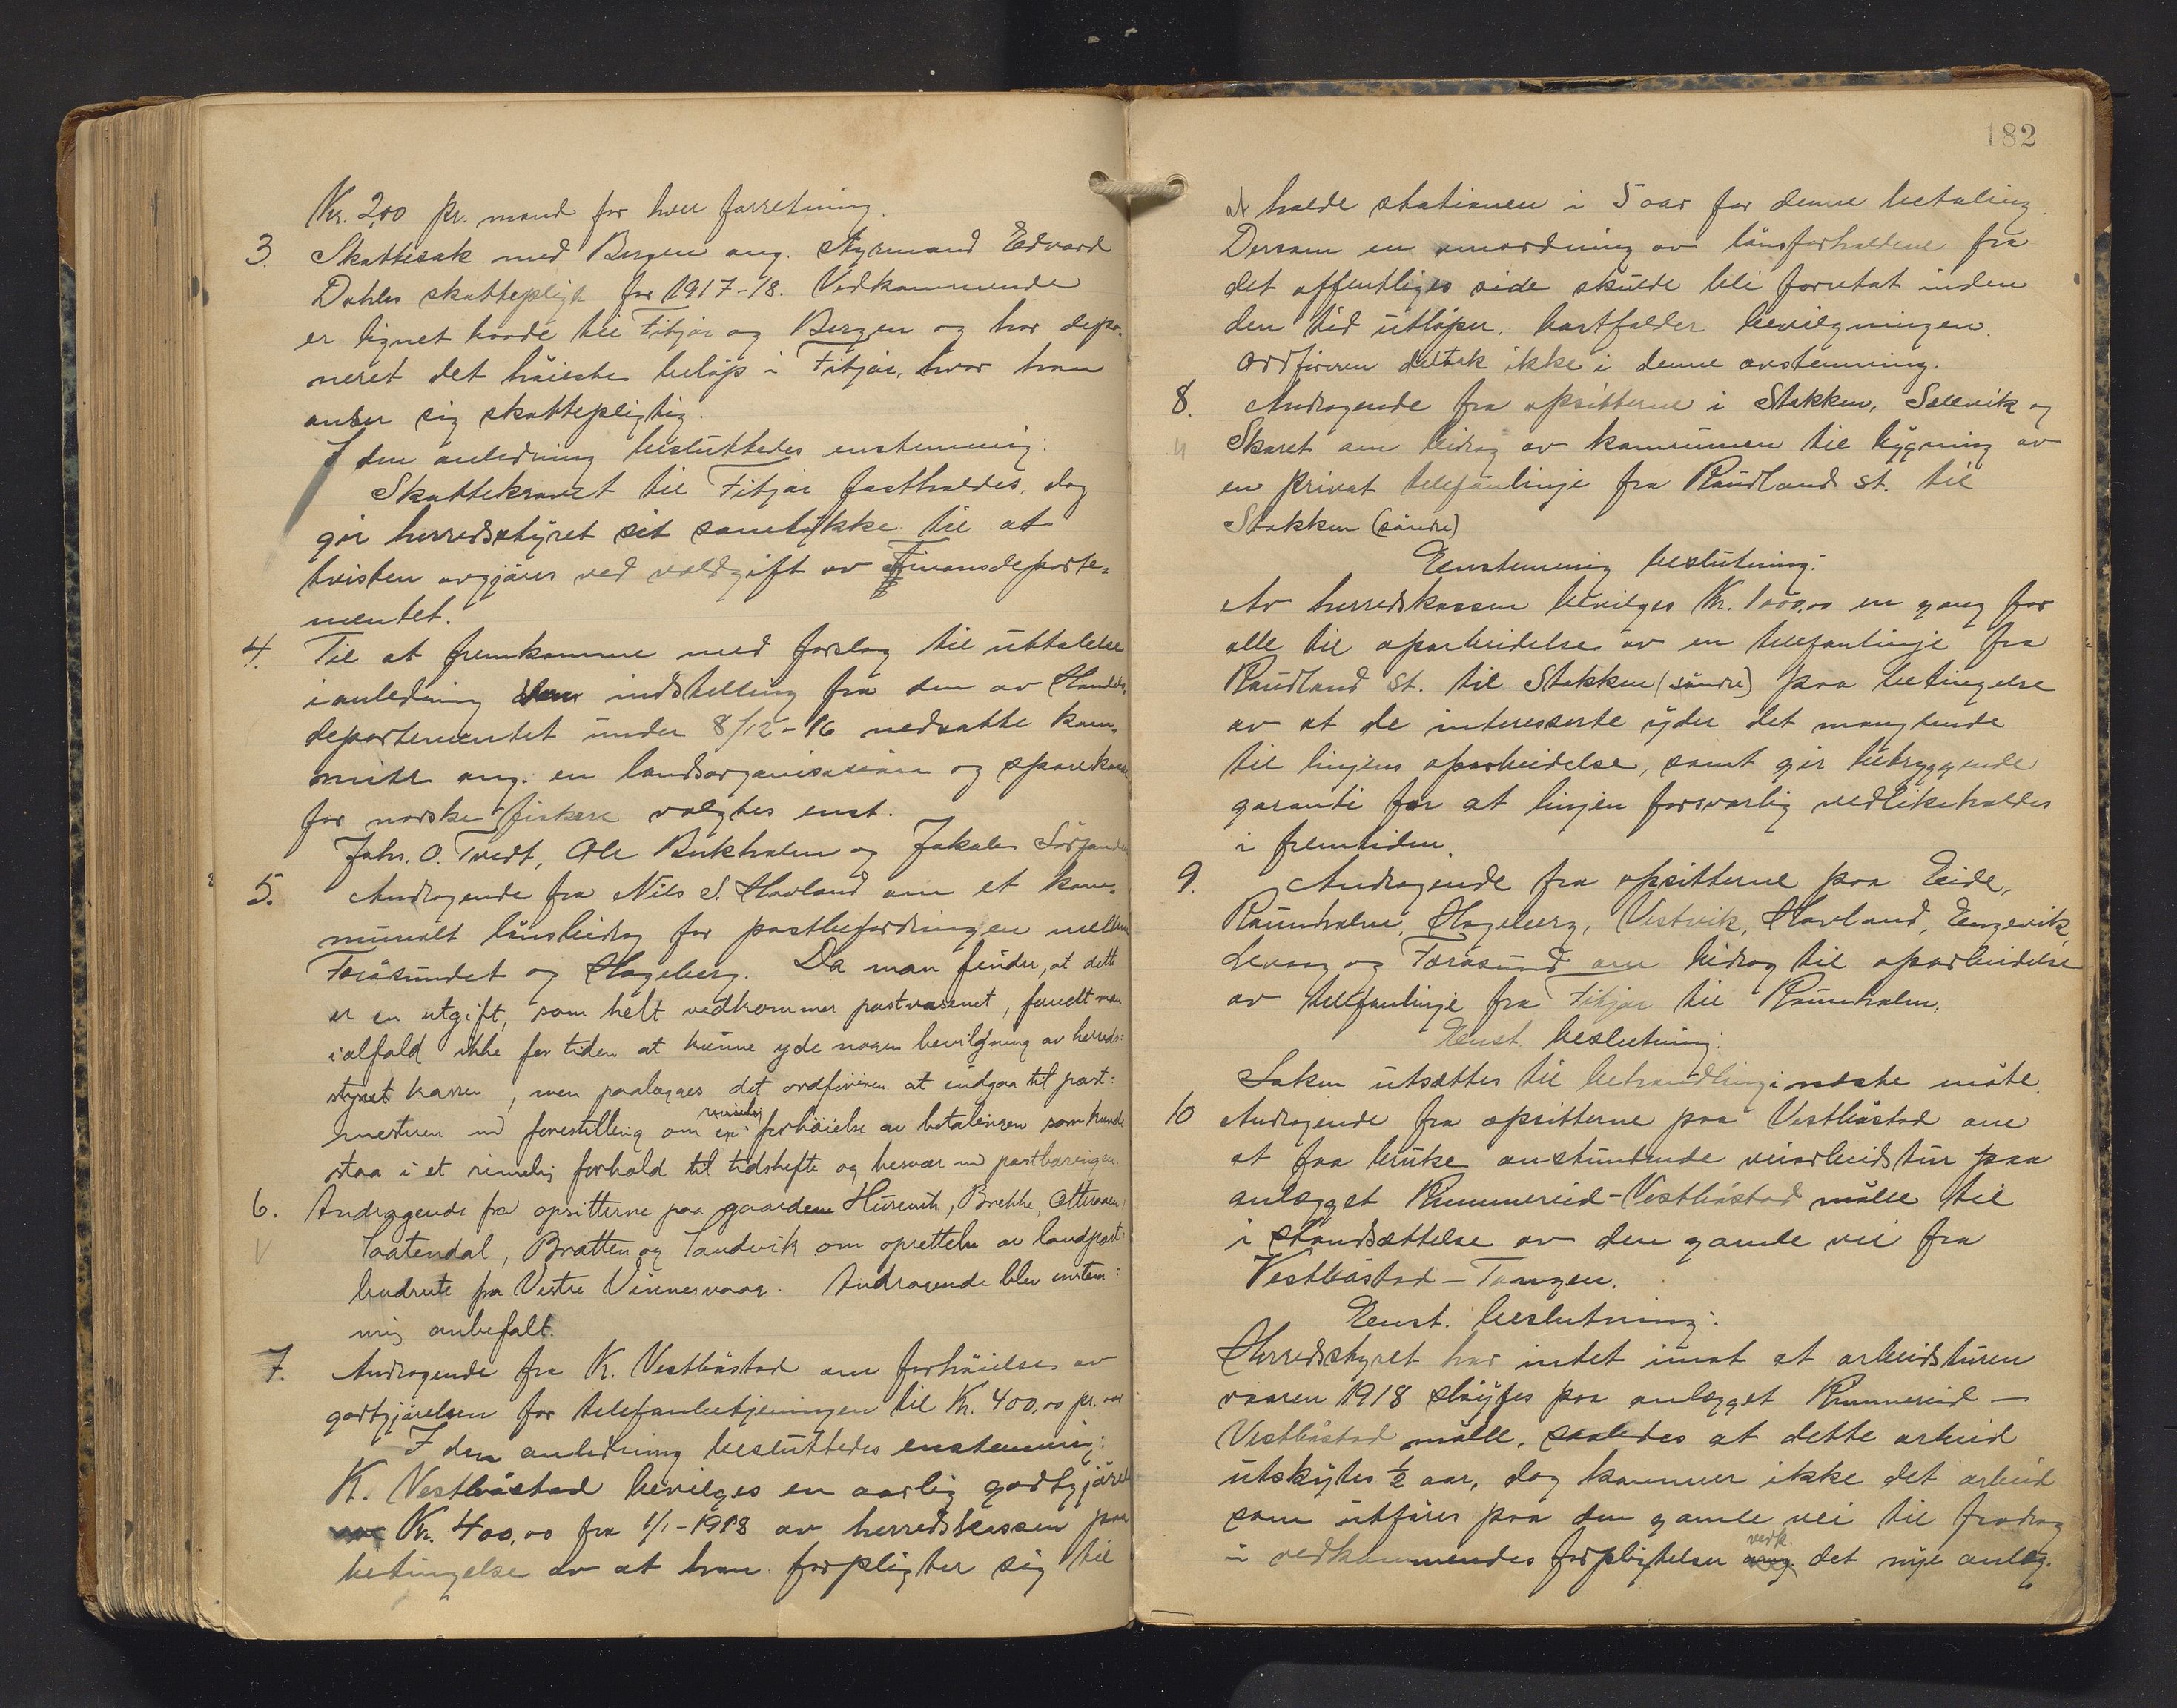 Kr. 2,00 pr. mand for hver forretning.
3. Skattesak med Bergen ang. styrmand Edvard
Dahles skattepligt for 1917-18. Vedkommende
er lignet baade til Fitjar og Bergen og har depo-
neret det höieste belöp i Fitjar, hvor han
anser sig skattepligtig.
I den anledning besluttedes enstemmig:
Skattekravet til Fitjar fastholdes, dog
gir herredsstyret sit samtykke til at
tvisten avgjöres ved voldgift av Finansdeparte-
mentet.
4. Til at fremkomme med forslag til uttalelse
i anledning indstilling fra den av Handels-
departementet under 8/12-16 nedsatte kom-
mite ang. en landsorganisasion og sparekasse
for norske fiskere valgtes enst.
Johs. O. Tvedt, Ole Bukholm og Jakob Sörfonden
5. Andragende fra Nils S. Havland om et kom-
munalt lönsbidrag for postbefordringen mellem
Foräsundet og Hageberg. Da man finder, at dette
er en utgift, som helt vedkommer postvæsenet, fandt man
ialfald ikke for tiden at kunne yde nogen bevilgning av herreds-
styret kassen, men paalægges det ordföreren at indgaa til post-
mesteren med forestilling om en rimelig forhöielse av betalingen som kunde
staa i et rimelig forhold til tidshefte og besvær med postbæringen.
6. Andragende fra opsitterne paa gaardene Hürevik, Brekke, Otteraaen,
V Taatendal, Bratten og Sandvik om oprettelse av landpost-
budrute fra Vestre Vinnesvaag. Andragende blev enstem-
mig anbefalt.
7. Andragende fra K. Vestböstad om forhöielse av
godtgjörelsen for telefonbetjeningen til Kr. 400,00 pr. aar
I den anledning besluttedes enstemmig:
K. Vestböstad bevilges en aarlig godtgjörelse
Kr. 400,00 fra 1/1-1918 av herredskassen paa
betingelse av at han forpligter sig til
182
at holde stationen i 5 aar for denne betaling.
Dersom en omordning av lönsforholdene fra
det offentliges side skulde bli foretat inden
den tid utlöper, bortfalder bevilgningen.
Ordföreren deltok ikke i denne avstemning.
8. Andragende fra opsitterne i Stokken, Sælevik og
Skaret om bidrag av kommunen til bygning av
en privat telefonlinje fra Raudland st. til
Stokken (söndre)
Enstemmig beslutning:
Av herredskassen bevilges Kr. 1000,00 en gang for
alle til oparbeidelse av en telefonlinje fra
Raudland st. til Stokken (söndre) paa betingelse
av at de interesserte yder det manglende
til linjens oparbeidelse, samt gir betryggende
garanti for at linjen forsvarlig vedlikeholdes
i fremtiden.
9. Andragende fra opsitterne paa Eide,
Raunholm, Hageberg, Vestvik, Havland, Engevik,
Levaag og Foräsund om bidrag til oparbeidelse
av telefonlinje fra Fitjar til Raunholm.
Enst. beslutning:
Saken utsættes til behandling i næste möte.
10 Andragende fra opsitterne paa Vestböstad om
at faa bruke anstundende veiarbeidstur paa
anlægget Rimmereid-Vestböstad mölle til
i standsættelse av den gamle vei fra
Vestböstad-Tangen.
Enst. beslutning:
Herredsstyret har intet imot at arbeidsturen
vaaren 1918 slöyfes paa anlægget Rimmereid -
Vestböstad mölle, saaledes at dette arbeid
utskytes ½ aar, dog kommer ikke det arbeid
som utföres paa den gamle vei til fradrag
i vedkommendes forpligtelser vedk. det nye anlæg.